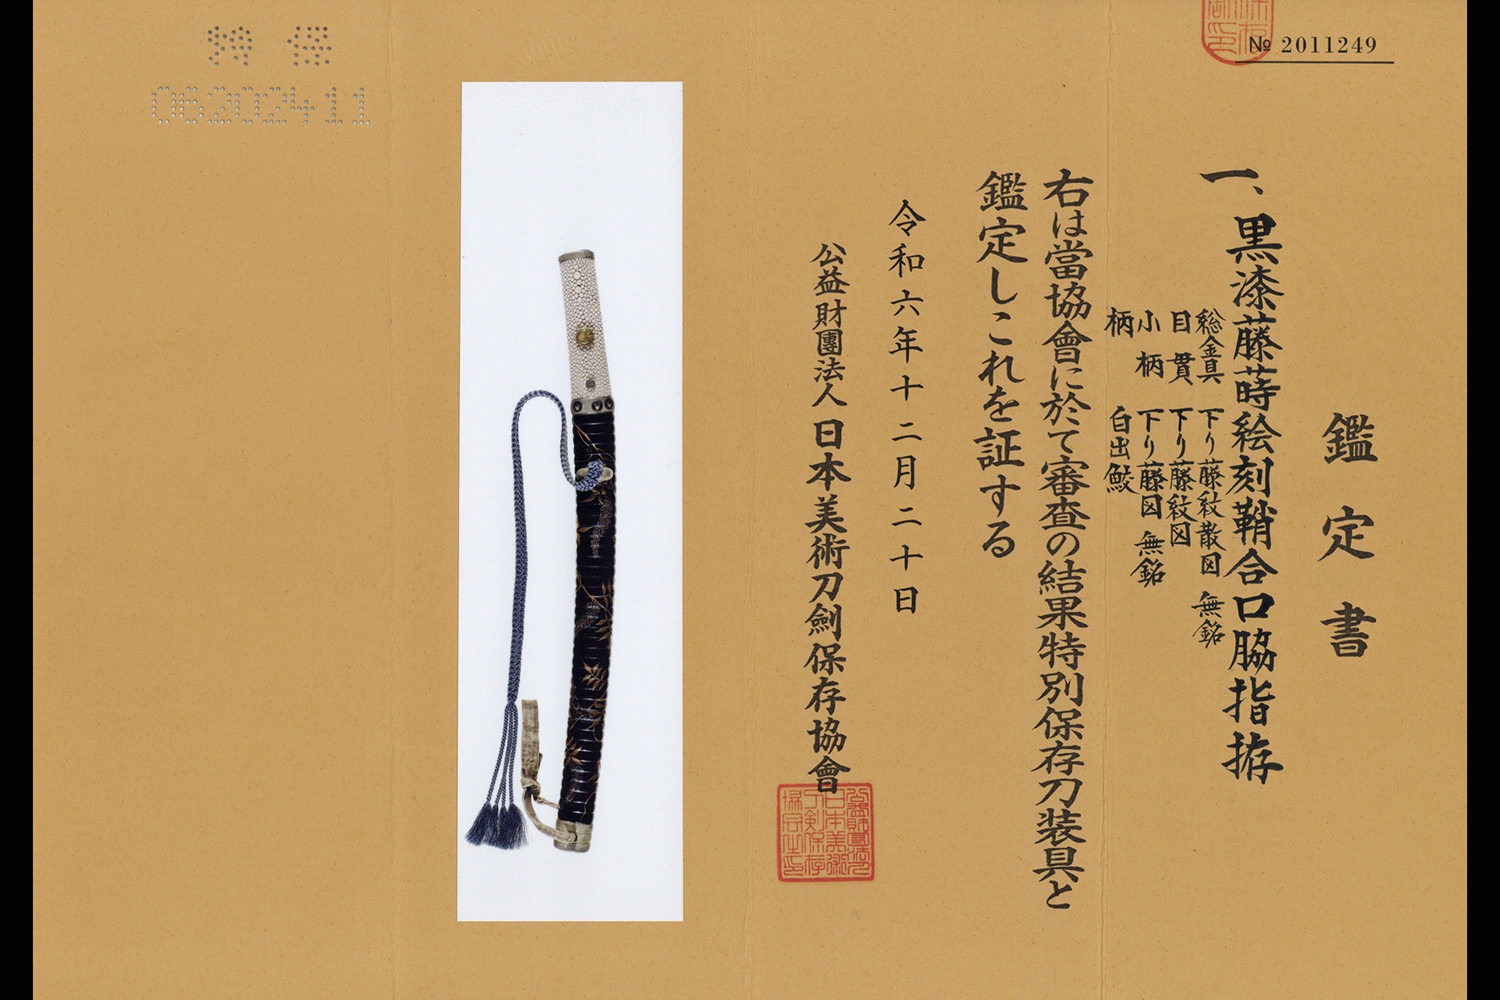 № 2011249
鑑定書
一、黒漆藤蒔絵刻鞘合口脇指拵
総金具 下り藤紋散図 無銘
目貫 下り藤紋図
小柄 下り藤図 無銘
柄 白出鮫
右は當協會に於て審査の結果特別保存刀装具と
鑑定しこれを証する
令和六年十二月二十日
公益財團法人日本美術刀劍保存協會
特保
06202411